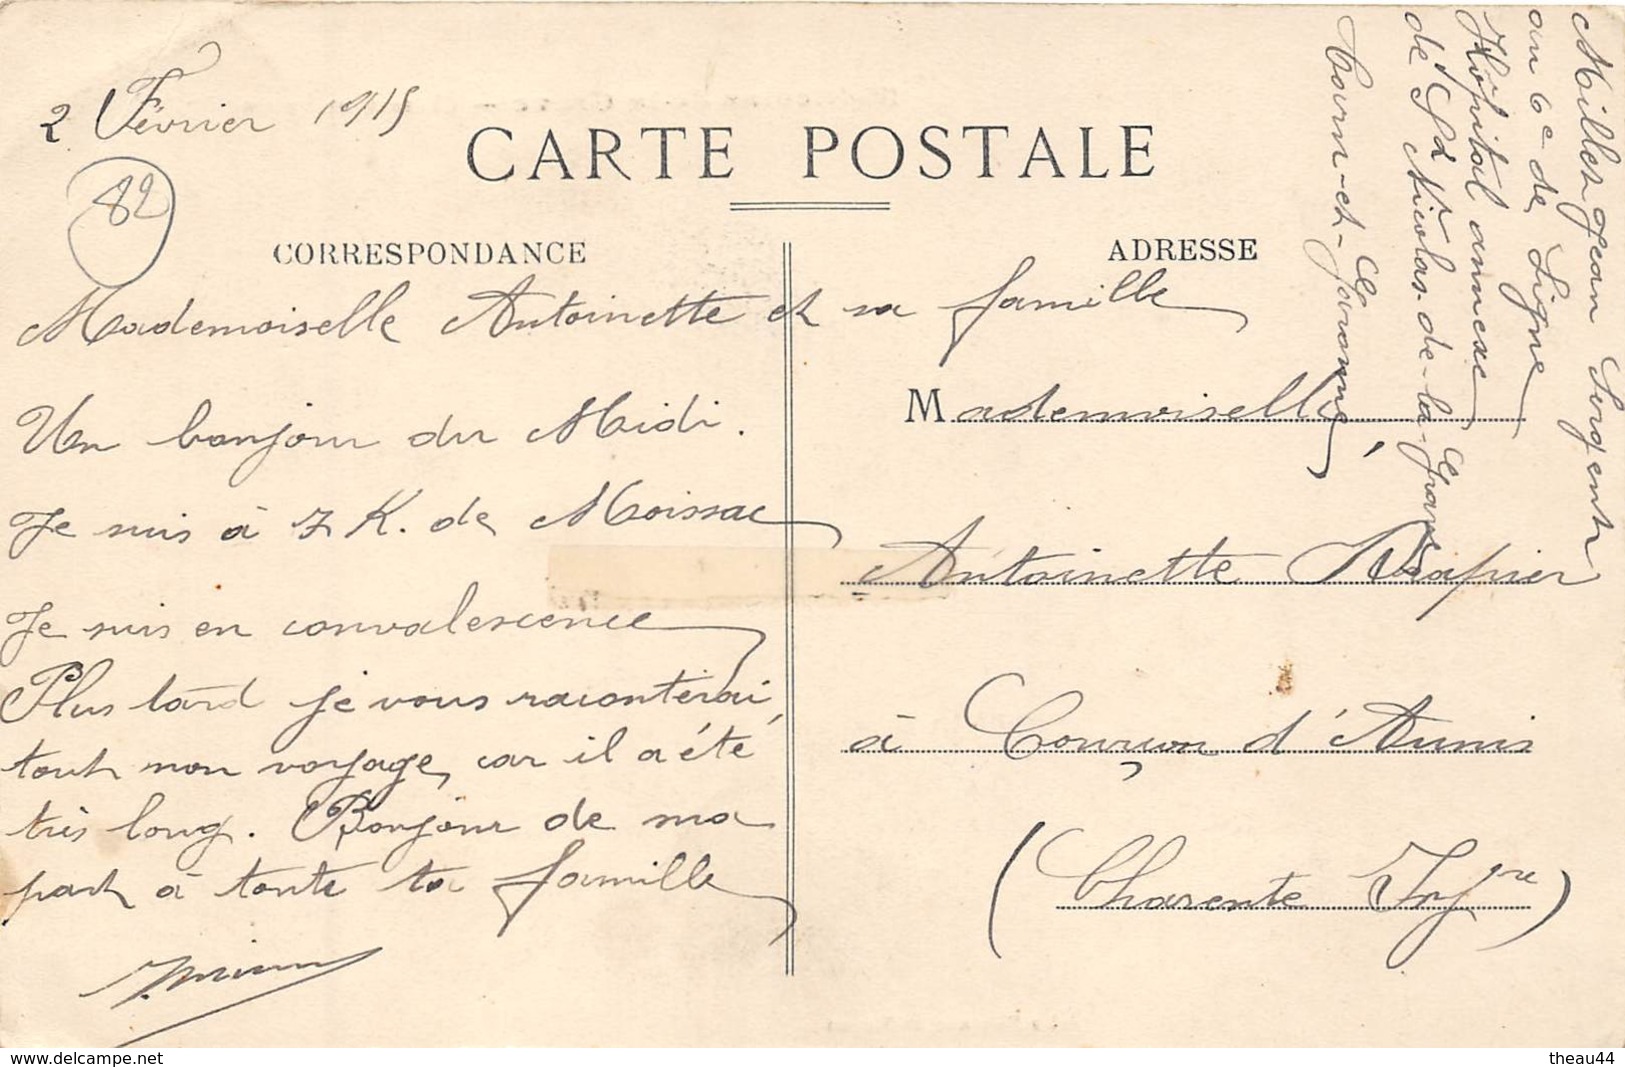 2 Février 1915
CARTE POSTALE
82
CORRESPONDANCE
ADRESSE
Mademoiselle Antoinette et sa famille
Un bonjour du Midi.
Je suis à 7 K. de Moissac
Je suis en convalescence
Plus tard je vous raconterai
tout mon voyage, car il a été
très long. Bonjour de ma
part à toute ta famille
Mademoiselle
Antoinette
à Courçon d'Aunis
(Charente Infre)
Millet Jean Sergent
au 6e de Ligne
Hôpital annexe
de St Nicolas-de-la-Grave
Tarn-et-Garonne
www.delcampe.net
theau44